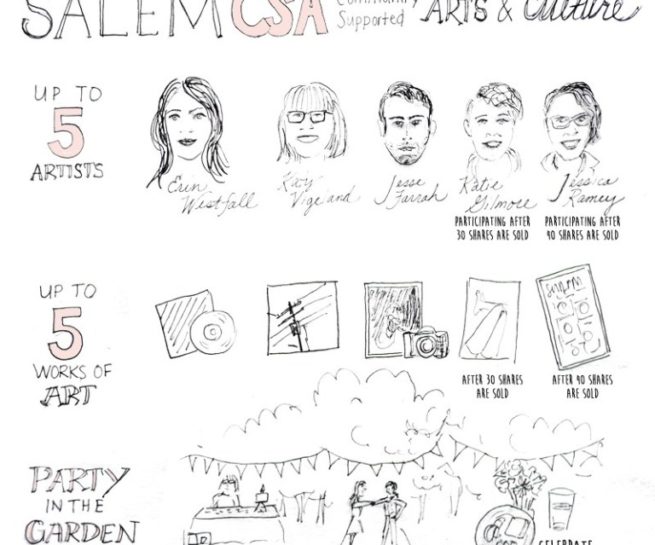 SALEM CSA Community Supported ARTS & Culture
UP TO
5
ARTISTS
Erin Westfall
Katy Vigeland
Jesse Farrah
Katie Gilmore
Jessica Ramey
PARTICIPATING AFTER
30 SHARES ARE SOLD
PARTICIPATING AFTER
40 SHARES ARE SOLD
UP TO
5
WORKS OF
ART
AFTER 30 SHARES
ARE SOLD
AFTER 40 SHARES
ARE SOLD
PARTY
IN THE
GARDEN
CELEBRATE